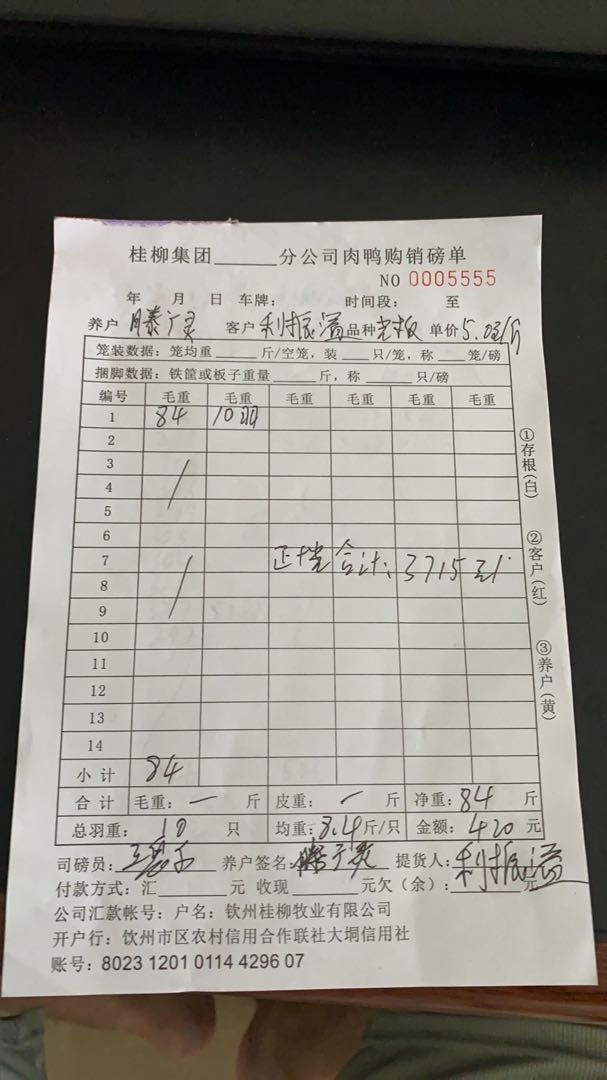 桂柳集团______分公司肉鸭购销磅单
NO 0005555
年 月 日 车牌： 时间段： 至
养户 滕广 客户 利振溢 品种 单价 5.0元/斤
笼装数据：笼均重______斤/空笼，装______只/笼，称______笼/磅
捆脚数据：铁筐或板子重量______斤，称______只/磅
编号 毛重 毛重 毛重 毛重 毛重 毛重
1 84 10羽
2
3
4
5
6
7 合计：3715元
8
9
10
11
12
13
14
小计 84
合计 毛重：— 斤 皮重： 斤 净重：84 斤
总羽重：10 只 均重：8.4斤/只 金额：420 元
司磅员： 养户签名：滕广 提货人：利振溢
付款方式：汇______元 收现______元欠（余）：______元
公司汇款帐号：户名：钦州桂柳牧业有限公司
开户行：钦州市区农村信用合作联社大垌信用社
账号：8023 1201 0114 4296 07
①存根（白）
②客户（红）
③养户（黄）